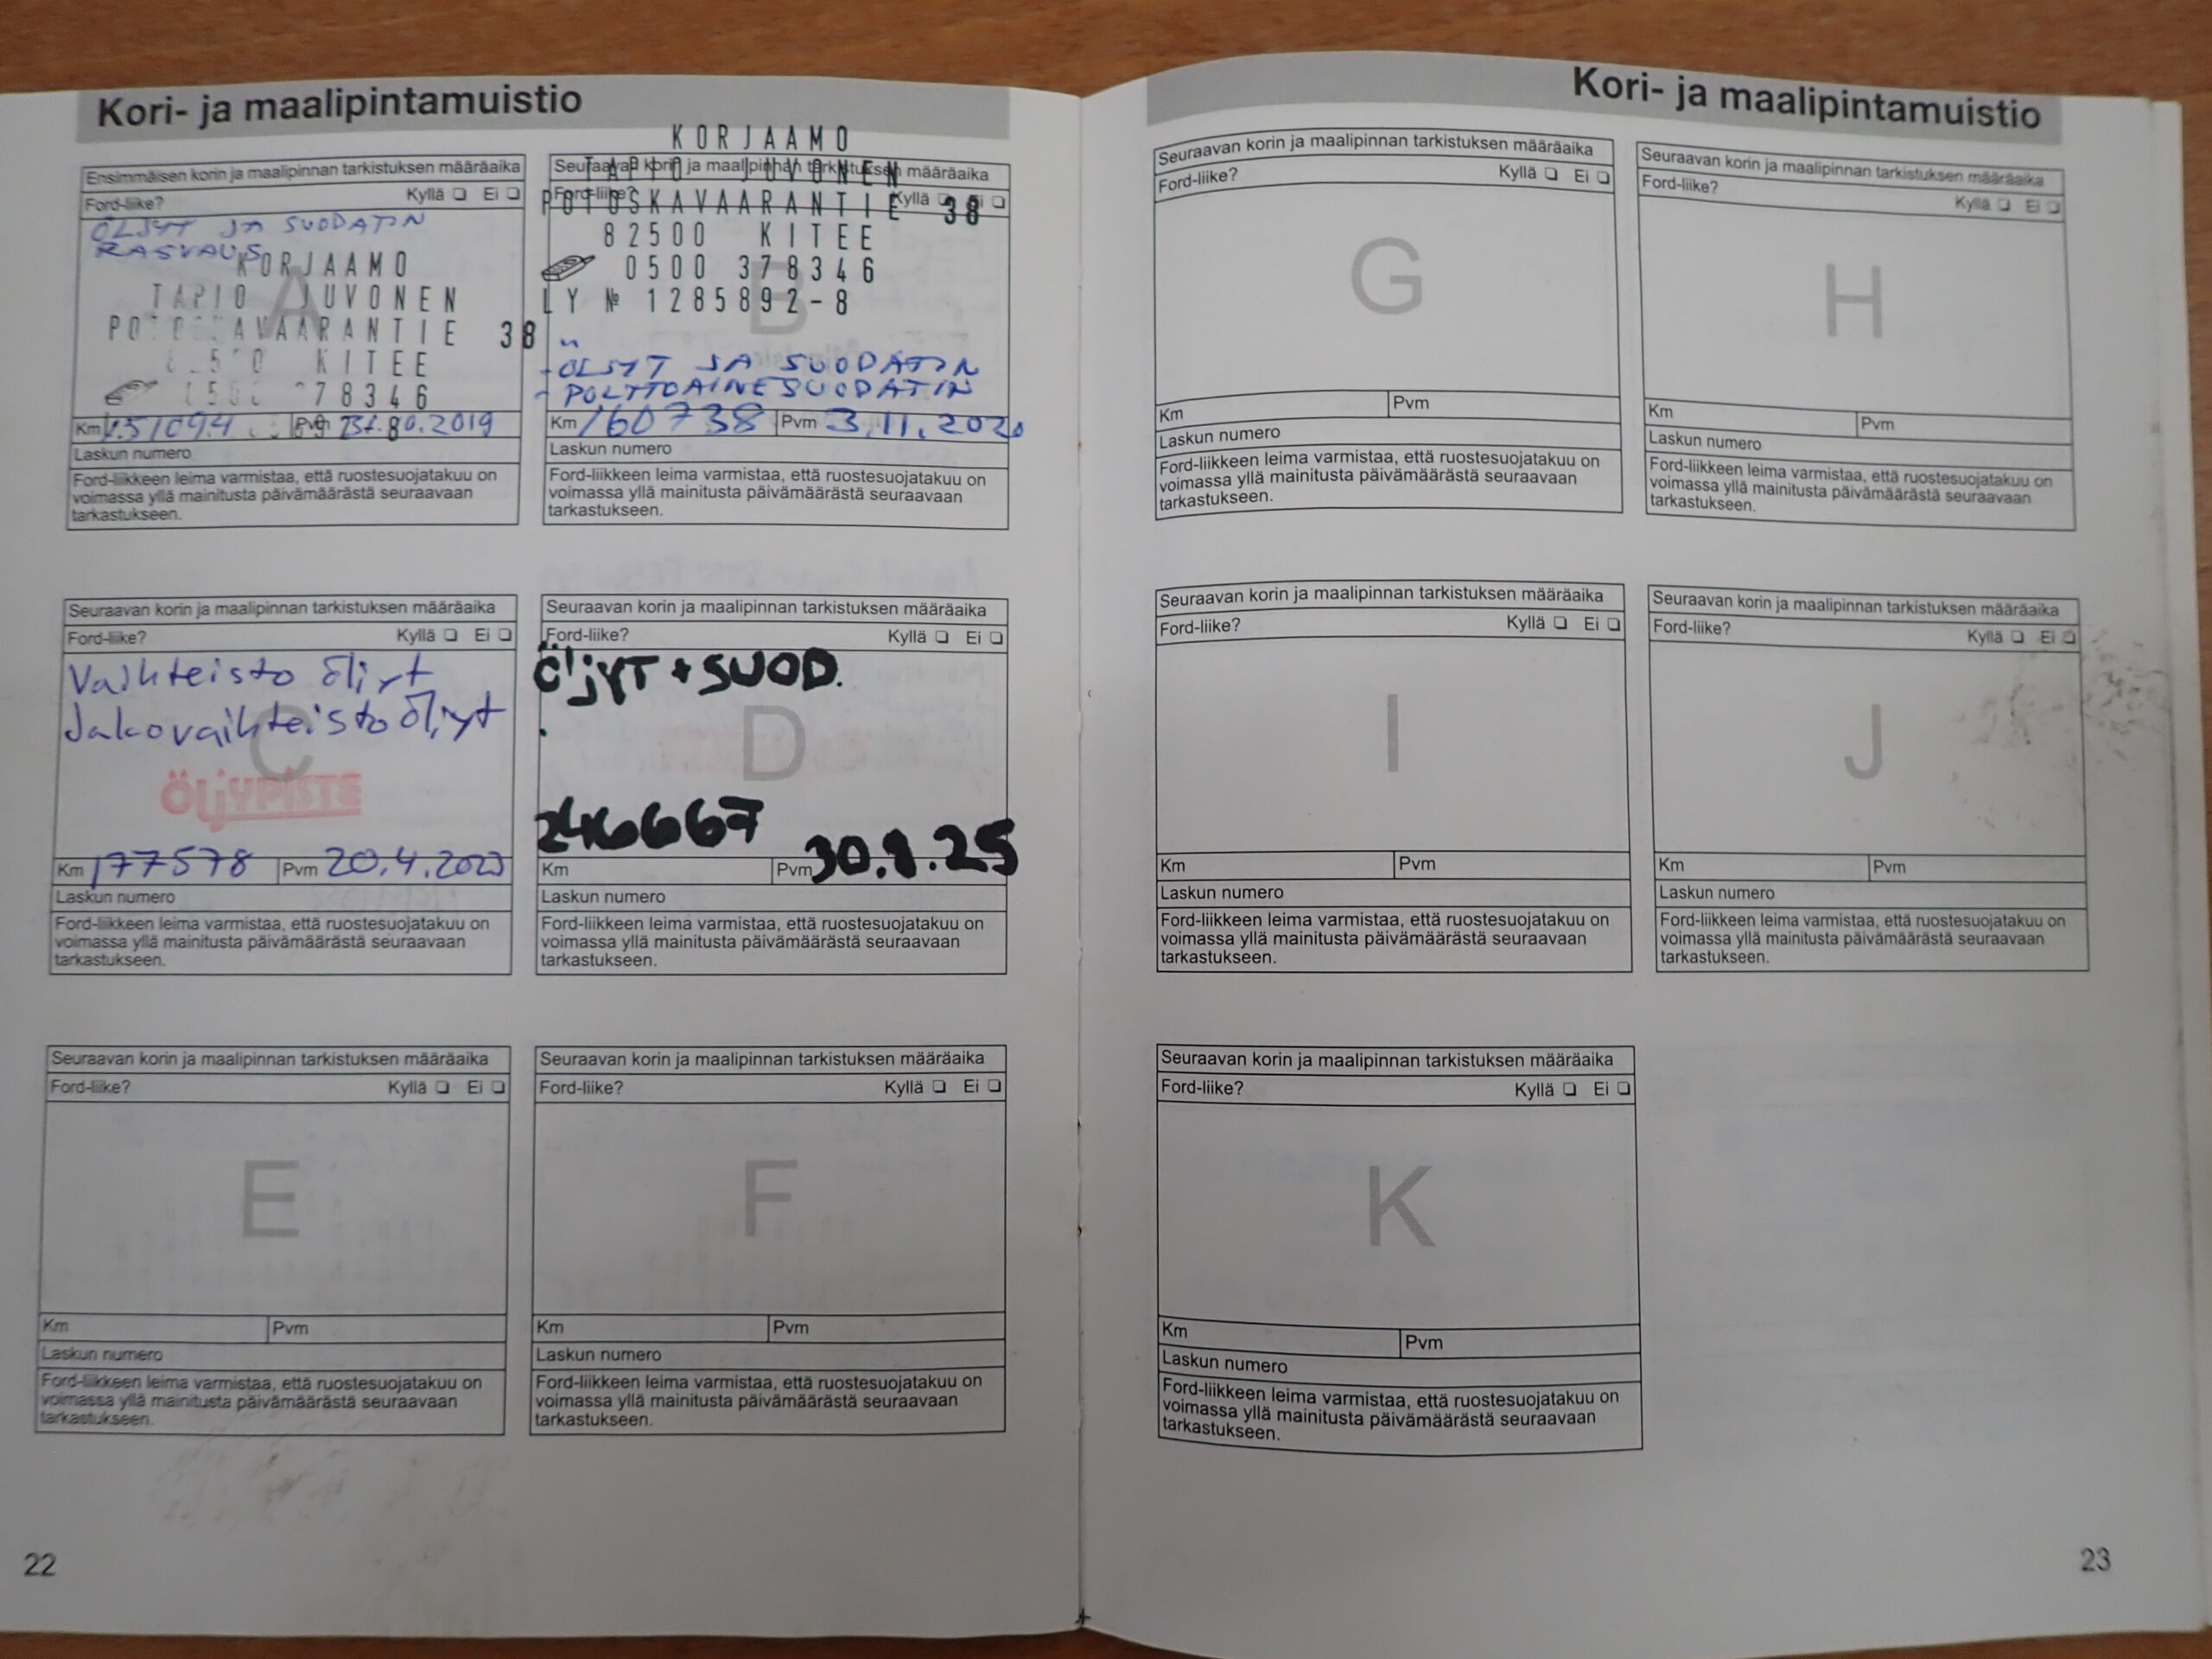 Kori- ja maalipintamuistio
Ensimmäisen korin ja maalipinnan tarkistuksen määräaika
Ford-liike? Kyllä ❏ Ei ❏
ÖLJYT JA SUODATIN
RASVAUS
KORJAAMO
TAPIO JUVONEN
AVAARANTIE 38
KITEE
78346
A
Km Pvm 2019
Laskun numero
Ford-liikkeen leima varmistaa, että ruostesuojatakuu on
voimassa yllä mainitusta päivämäärästä seuraavaan
tarkastukseen.
KORJAAMO
TAPIO JUVONEN
POTOSKAVAARANTIE 38
82500 KITEE
0500 378346
LY № 1285892-8
Seuraavan korin ja maalipinnan tarkistuksen määräaika
Ford-liike? Kyllä ❏ Ei ❏
B
- ÖLJYT JA SUODATIN
- POLTTOAINESUODATIN
Km 160738 Pvm 3.11.2020
Laskun numero
Ford-liikkeen leima varmistaa, että ruostesuojatakuu on
voimassa yllä mainitusta päivämäärästä seuraavaan
tarkastukseen.
Seuraavan korin ja maalipinnan tarkistuksen määräaika
Ford-liike? Kyllä ❏ Ei ❏
Vaihteisto öljyt
Jakovaihteisto öljyt
C
ÖLJYPISTE
Km 177578 Pvm 20.4.2023
Laskun numero
Ford-liikkeen leima varmistaa, että ruostesuojatakuu on
voimassa yllä mainitusta päivämäärästä seuraavaan
tarkastukseen.
Seuraavan korin ja maalipinnan tarkistuksen määräaika
Ford-liike? Kyllä ❏ Ei ❏
ÖljYT + SUOD.
D
246667
30.1.25
Km Pvm
Laskun numero
Ford-liikkeen leima varmistaa, että ruostesuojatakuu on
voimassa yllä mainitusta päivämäärästä seuraavaan
tarkastukseen.
Seuraavan korin ja maalipinnan tarkistuksen määräaika
Ford-liike? Kyllä ❏ Ei ❏
E
Km Pvm
Laskun numero
Ford-liikkeen leima varmistaa, että ruostesuojatakuu on
voimassa yllä mainitusta päivämäärästä seuraavaan
tarkastukseen.
Seuraavan korin ja maalipinnan tarkistuksen määräaika
Ford-liike? Kyllä ❏ Ei ❏
F
Km Pvm
Laskun numero
Ford-liikkeen leima varmistaa, että ruostesuojatakuu on
voimassa yllä mainitusta päivämäärästä seuraavaan
tarkastukseen.
22
Kori- ja maalipintamuistio
Seuraavan korin ja maalipinnan tarkistuksen määräaika
Ford-liike? Kyllä ❏ Ei ❏
G
Km Pvm
Laskun numero
Ford-liikkeen leima varmistaa, että ruostesuojatakuu on
voimassa yllä mainitusta päivämäärästä seuraavaan
tarkastukseen.
Seuraavan korin ja maalipinnan tarkistuksen määräaika
Ford-liike? Kyllä ❏ Ei ❏
H
Km Pvm
Laskun numero
Ford-liikkeen leima varmistaa, että ruostesuojatakuu on
voimassa yllä mainitusta päivämäärästä seuraavaan
tarkastukseen.
Seuraavan korin ja maalipinnan tarkistuksen määräaika
Ford-liike? Kyllä ❏ Ei ❏
I
Km Pvm
Laskun numero
Ford-liikkeen leima varmistaa, että ruostesuojatakuu on
voimassa yllä mainitusta päivämäärästä seuraavaan
tarkastukseen.
Seuraavan korin ja maalipinnan tarkistuksen määräaika
Ford-liike? Kyllä ❏ Ei ❏
J
Km Pvm
Laskun numero
Ford-liikkeen leima varmistaa, että ruostesuojatakuu on
voimassa yllä mainitusta päivämäärästä seuraavaan
tarkastukseen.
Seuraavan korin ja maalipinnan tarkistuksen määräaika
Ford-liike? Kyllä ❏ Ei ❏
K
Km Pvm
Laskun numero
Ford-liikkeen leima varmistaa, että ruostesuojatakuu on
voimassa yllä mainitusta päivämäärästä seuraavaan
tarkastukseen.
23